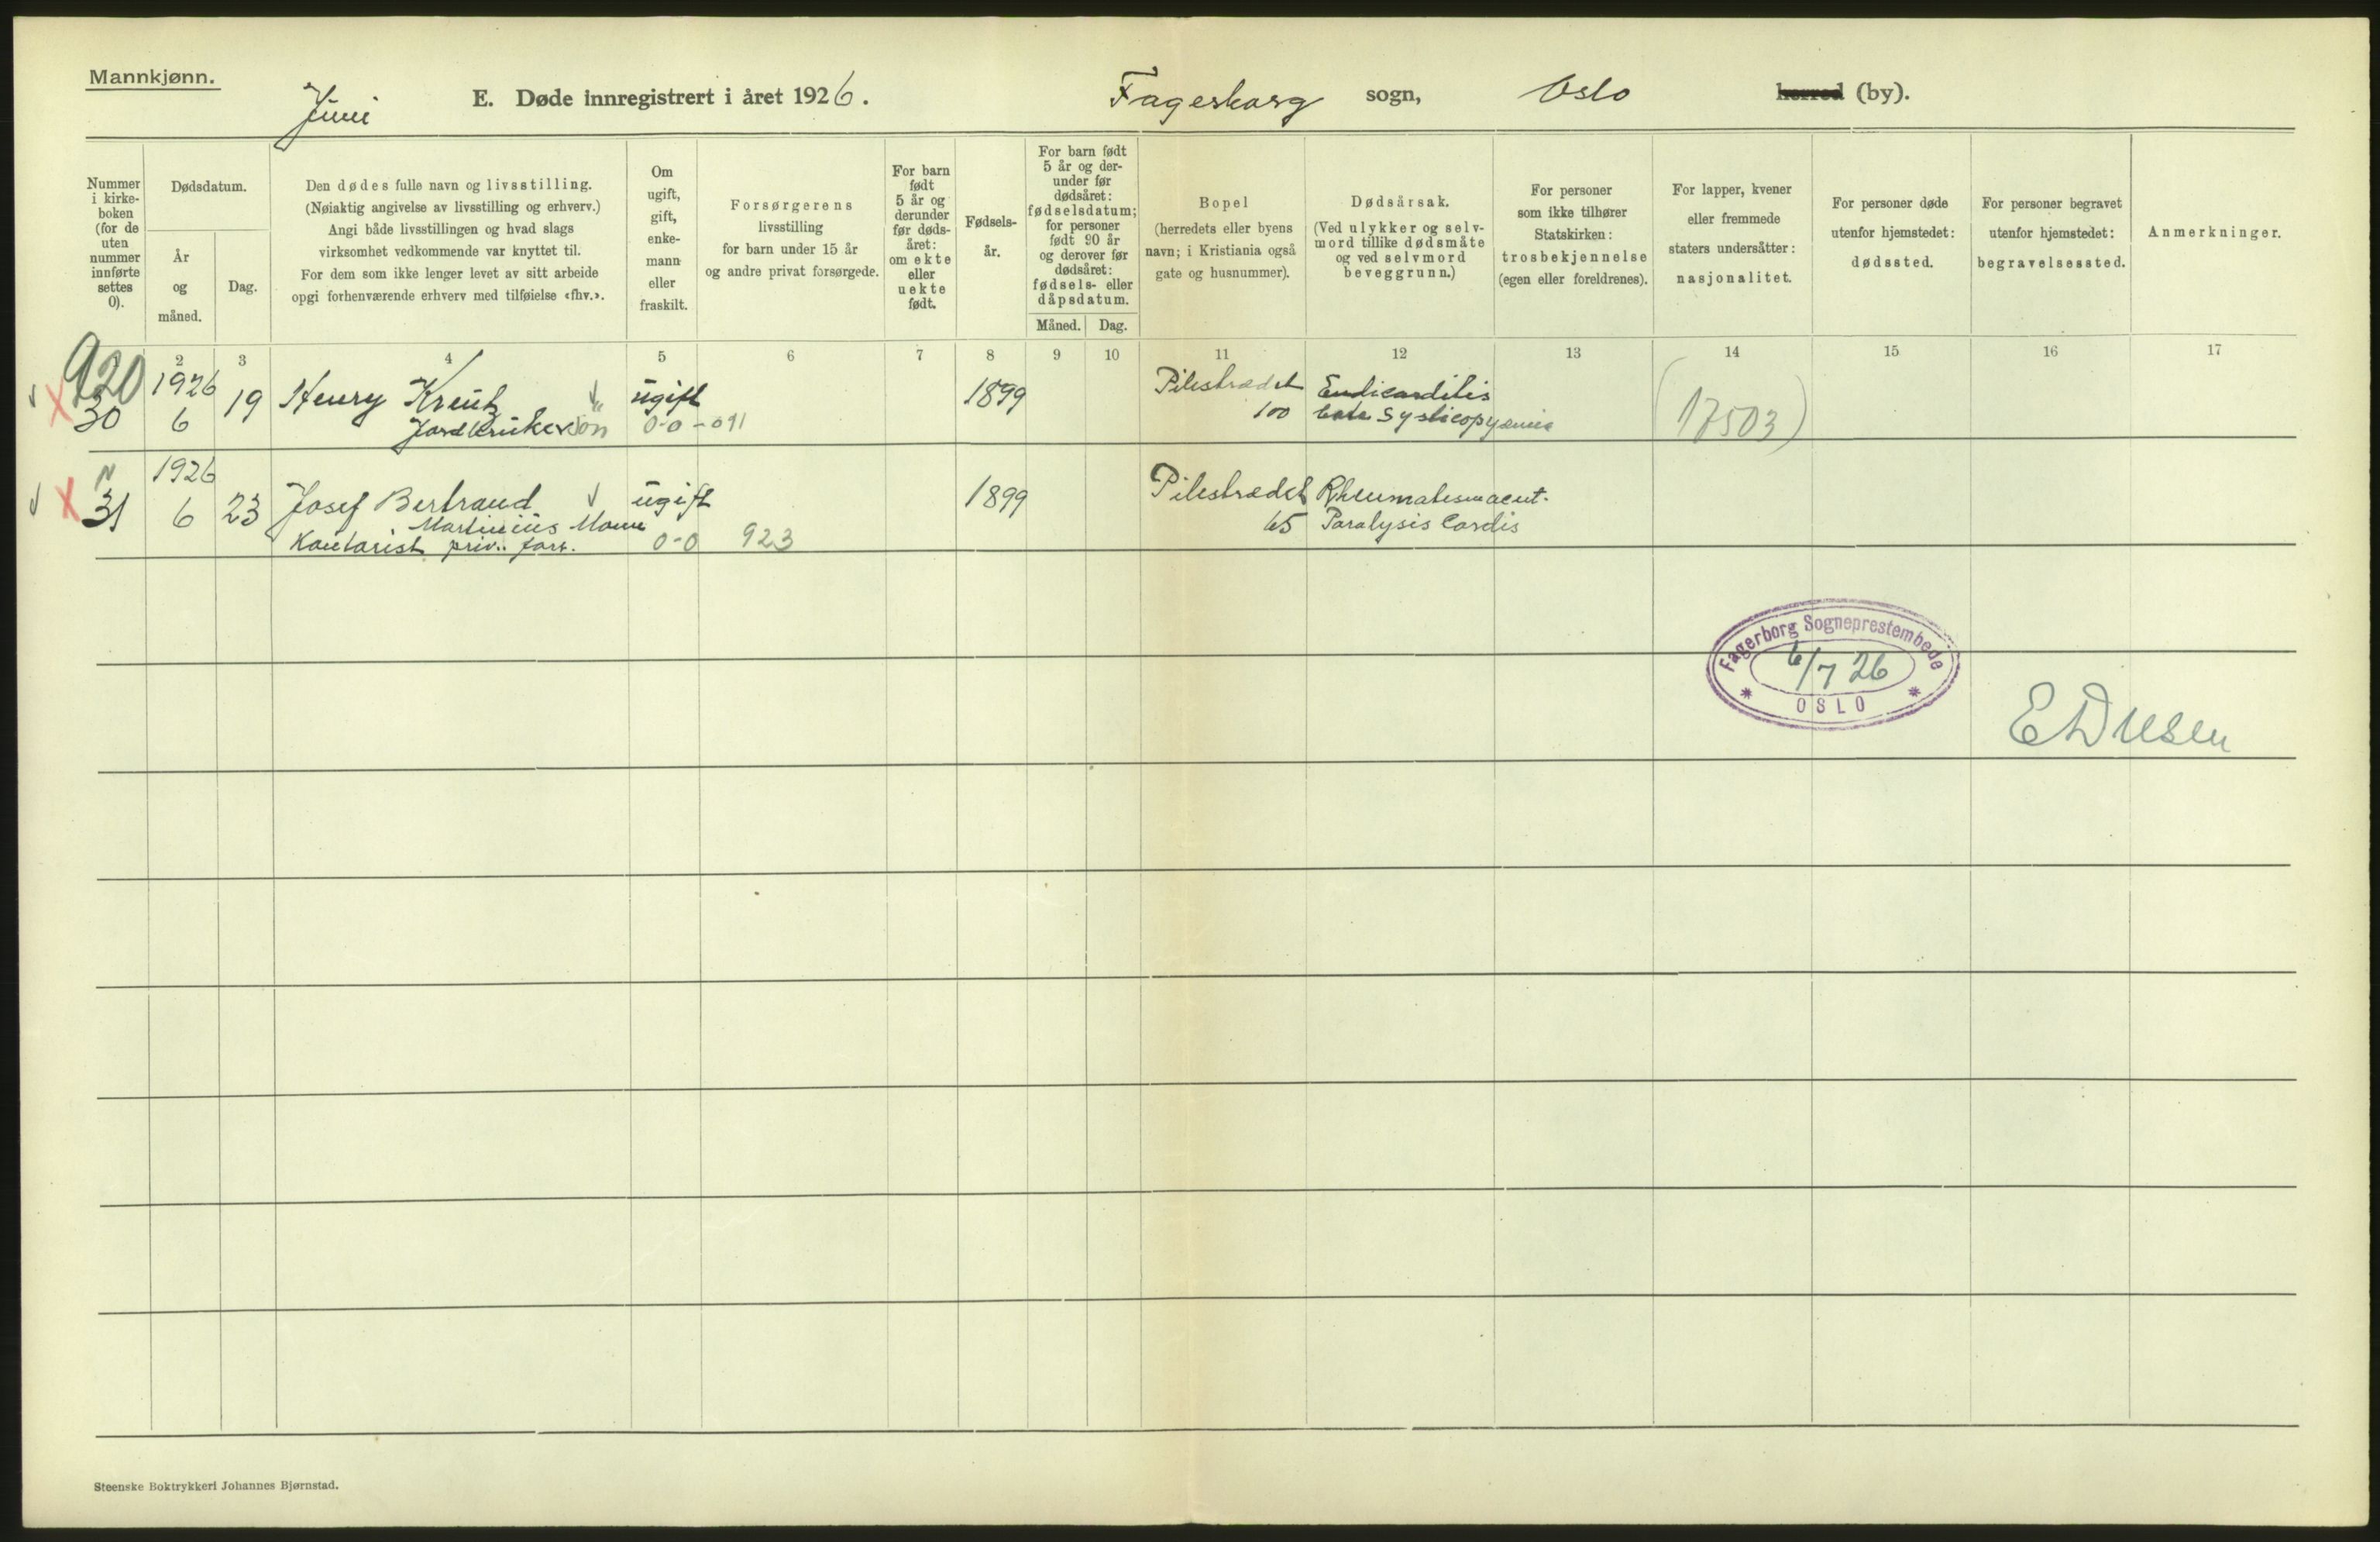 Mannkjønn.
Juni
E. Døde innregistrert i året 1926.
Fagerborg sogn, Oslo herred (by).
Nummer i kirke-boken (for de uten nummer innførte settes 0).
Dødsdatum.
År og måned.
Dag.
Den dødes fulle navn og livsstilling.
(Nøiaktig angivelse av livsstilling og erhverv.)
Angi både livsstillingen og hvad slags
virksomhet vedkommende var knyttet til.
For dem som ikke lenger levet av sitt arbeide
opgi forhenværende erhverv med tilføielse «fhv.».
Om ugift, gift, enke-mann eller fraskilt.
Forsørgerens
livsstilling
for barn under 15 år
og andre privat forsørgede.
For barn født 5 år og derunder før døds-året: om ekte eller uekte født.
Fødsels-år.
For barn født 5 år og der-under før dødsåret: fødselsdatum; for personer født 90 år og derover før dødsåret: fødsels- eller dåpsdatum.
Måned. Dag.
Bopel
(herredets eller byens
navn; i Kristiania også
gate og husnummer).
Dødsårsak.
(Ved ulykker og selv-
mord tillike dødsmåte
og ved selvmord
beveggrunn.)
For personer
som ikke tilhører
Statskirken:
trosbekjennelse
(egen eller foreldrenes).
For lapper, kvener
eller fremmede
staters undersåtter:
nasjonalitet.
For personer døde
utenfor hjemstedet:
dødssted.
For personer begravet
utenfor hjemstedet:
begravelsessted.
Anmerkninger.
2 3 4 5 6 7 8 9 10 11 12 13 14 15 16 17
920
1926 19 Henry Kreutz ugift 1899 Pilestrædet Endicarditis
30 6 Jordbruker søn 0-0-011 100 (17503)
1926
31 6 23 Josef Bertrand ugift 1899 Pilestrædet Rheumatism acut.
Martinius Moume 65 Paralysis Cordis
Kontorist priv. forr. 0-0 923
Fagerborg Sogneprestembede
6/7 26
* OSLO *
Steenske Boktrykkeri Johannes Bjørnstad.